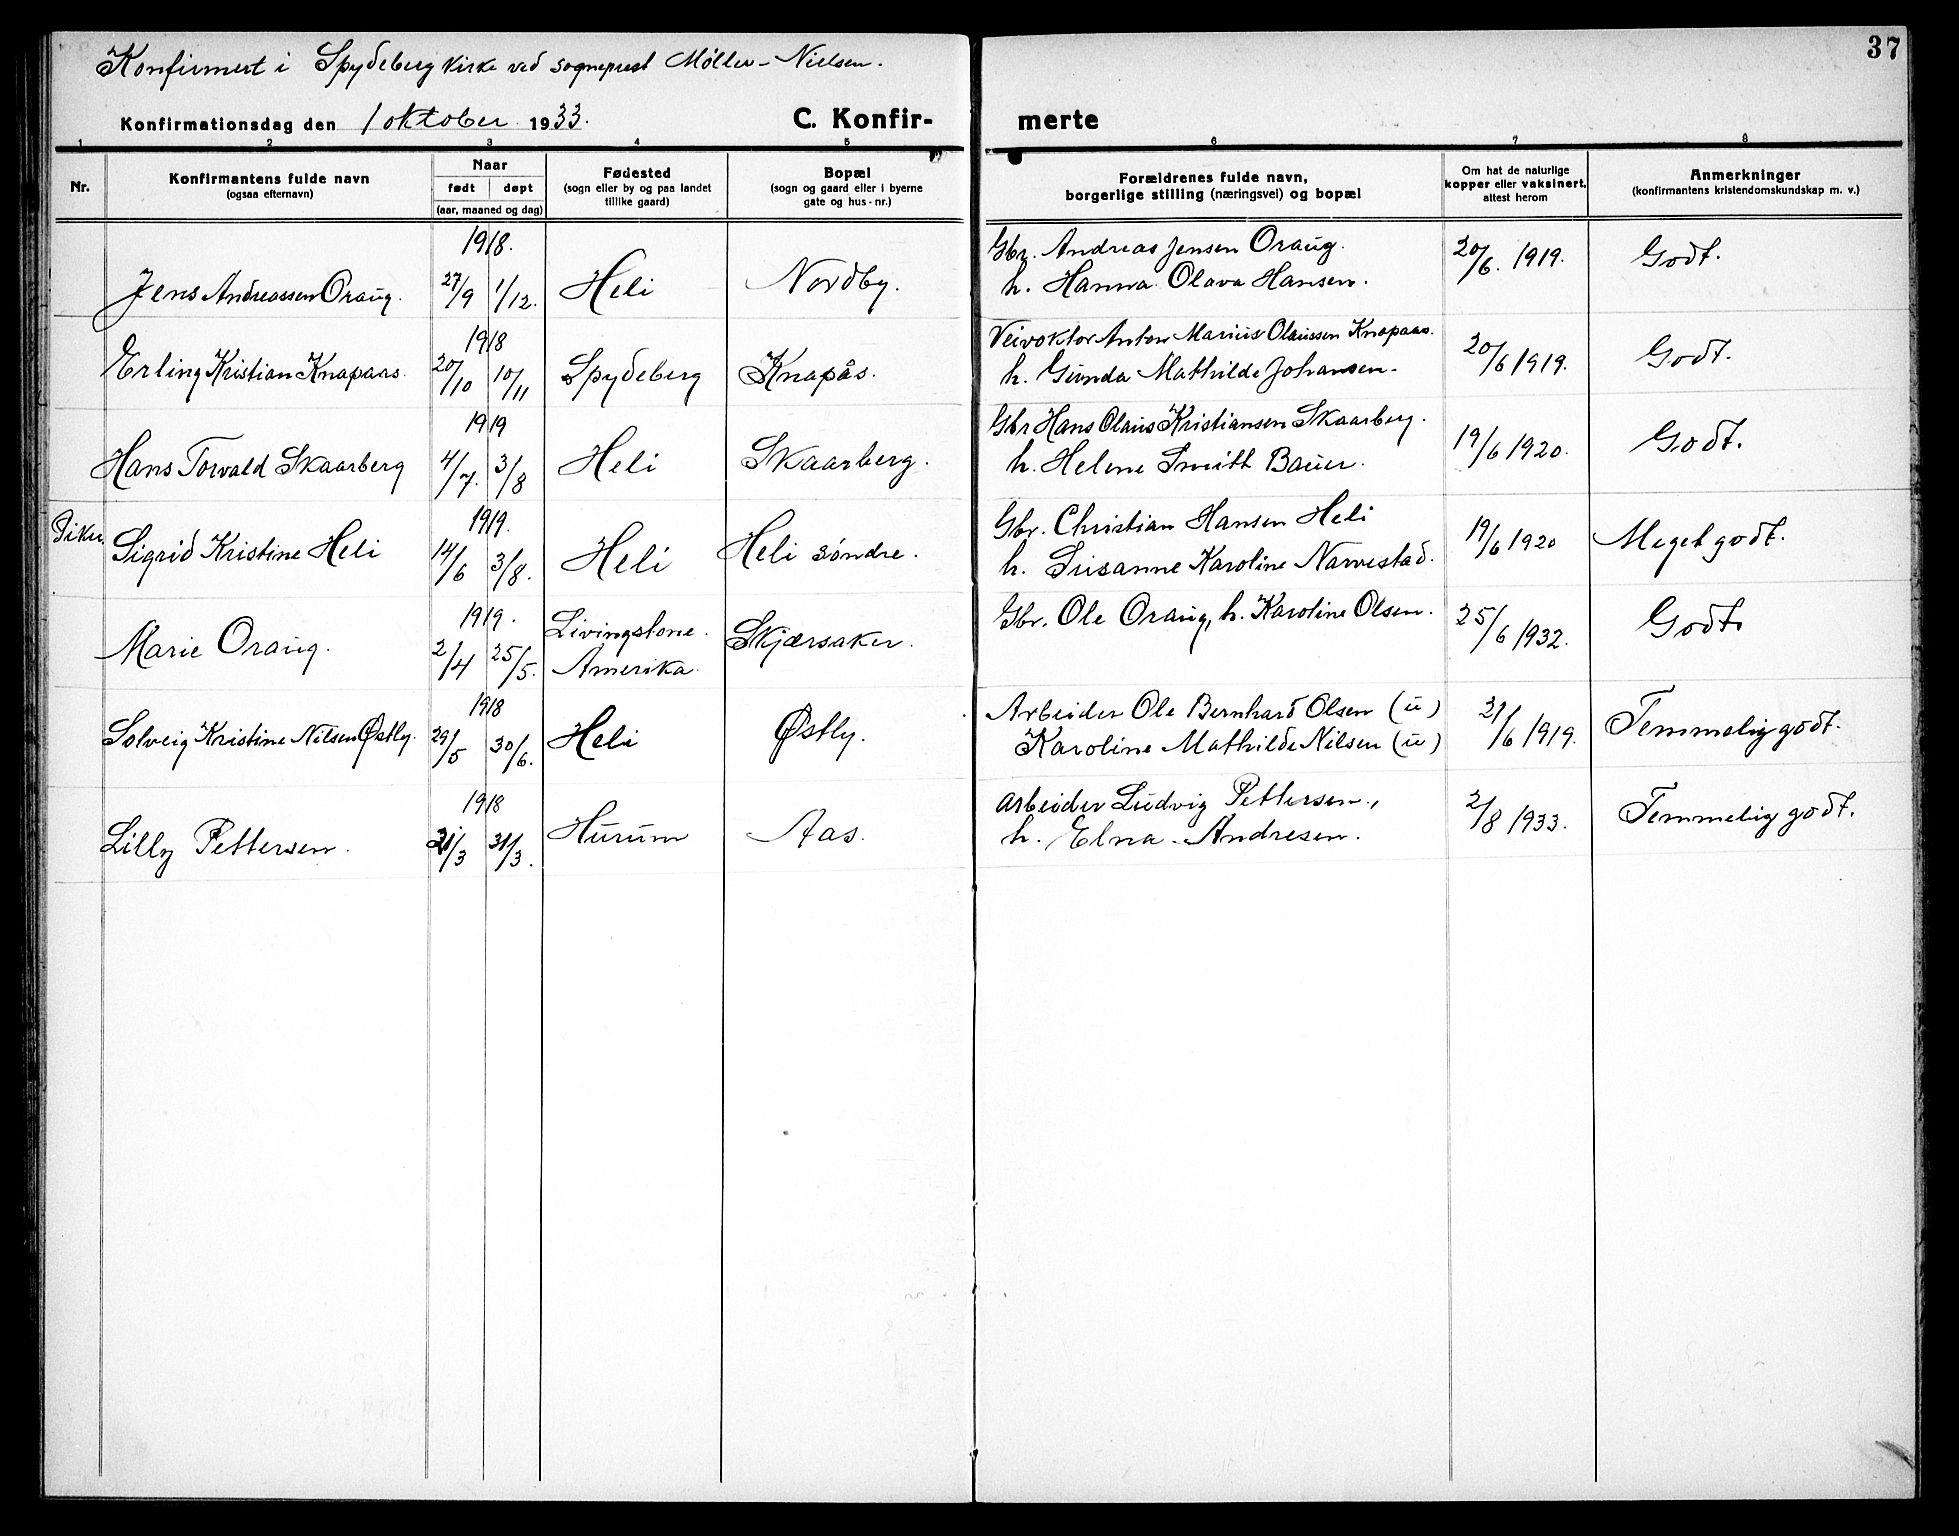 37
Konfirmert i Spydeberg kirke ved sogneprest Møller-Nielsen.
Konfirmationsdag den 1 oktober 1933.
C. Konfir- merte
1 2 3 4 5 6 7 8
Nr.
Konfirmantens fulde navn
(ogsaa efternavn)
Naar
født døpt
(aar, maaned og dag)
Fødested
(sogn eller by og paa landet
tillike gaard)
Bopæl
(sogn og gaard eller i byerne
gate og hus-nr.)
Forældrenes fulde navn,
borgerlige stilling (næringsvei) og bopæl
Om hat de naturlige
kopper eller vaksinert,
attest herom
Anmerkninger
(konfirmantens kristendomskundskap m. v.)
1918.
Jens Andreassen Oraug. 27/9 1/12. Heli Nordby.
Gbr. Andreas Jensen Oraug.
h. Hanna Olava Hansen.
20/6. 1919. Godt.
1918
Erling Kristian Knapaas. 20/10 10/11 Spydeberg Knapås.
Veivokter Anton Marius Olaussen Knapaas.
h. Gunda Mathilde Johansen.
20/6 1919. Godt.
1919
Hans Torvald Skaarberg 4/7. 3/8 Heli Skaarberg.
Gbr Hans Olaus Kristiansen Skaarberg.
h. Helene Smith Bauer.
19/6 1920. Godt.
Piker
1919.
Sigrid Kristine Heli 14/6 3/8. Heli Heli søndre.
Gbr. Christian Hansen Heli
h. Susanne Karoline Narvestad.
19/6 1920 Meget godt.
1919.
Marie Oraug. 2/4 25/5. Livingstone.
Amerika. Skjærsaker.
Gbr. Ole Oraug, h. Karoline Olsen.
25/6 1932. Godt.
1918
Solveig Kristine Nilsen Østby. 29/5 30/6. Heli Østby.
Arbeider Ole Bernhard Olsen (u)
Karoline Mathilde Nilsen (u)
21/6 1919. Temmelig godt.
1918
Lilly Pettersen. 21/3 31/3. Hurum Aas.
Arbeider Ludvig Pettersen,
h. Elna Andresen.
2/8 1933. Temmelig godt.